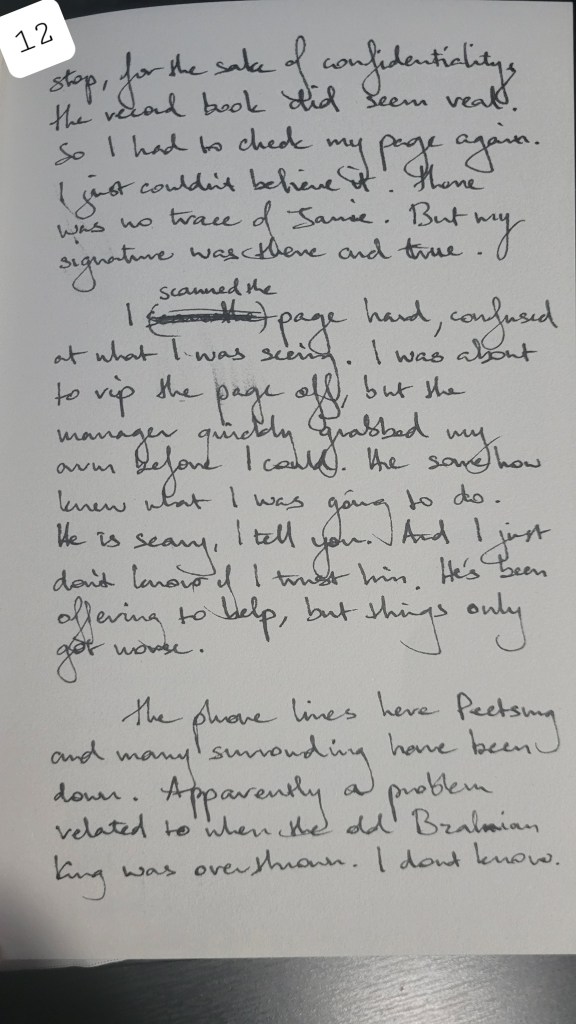 12
stop, for the sake of confidentiality,
the record book did seem real.
So I had to check my page again.
I just couldn't believe it. There
was no trace of Jamie. But my
signature was there and true.
scanned the
I page hard, confused
at what I was seeing. I was about
to rip the page off, but the
manager quickly grabbed my
arm before I could. He somehow
knew what I was going to do.
He is scary, I tell you. And I just
don't know if I trust him. He's been
offering to help, but things only
got worse.
The phone lines here Peetsung
and many surrouding have been
down. Apparently a problem
related to when the old Bralmian
King was overthrown. I dont know.